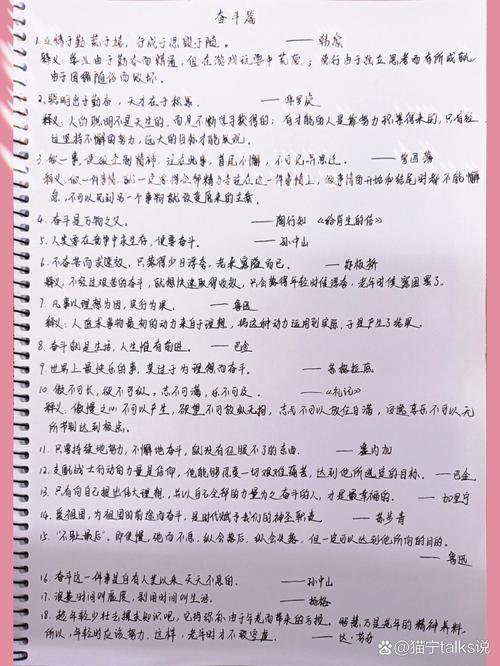 奋斗篇
1.业精于勤荒于嬉，行成于思毁于随。 —— 韩愈
释义：学业由于勤奋而精通，但在游戏玩乐中荒废；德行由于独立思考而有所成就
由于因循随俗而败坏。
2.聪明出于勤奋，天才在于积累。 —— 华罗庚
释义：人的聪明不是天生的，而是不断学习获得的；有才能的人是靠努力积累得来的，只有经
过坚持不懈的努力，远大的目标才能实现。
3.做一事，便须全副精神，注在此事，首尾不懈，不可见异思迁。 —— 曾国藩
释义：做一件事情，就一定要将全部精力专注在这一件事情上，做事情的开始和结尾时都不能懈
怠，不可以见到另一个事物就改变原来的主意。
4.奋斗是万物之父。 —— 陶行知 《给肖生的信》
5.人类要在竞争中求生存，便要奋斗。 —— 孙中山
6.不奋苦而求速效，只落得少日浮夸，老来窘隘而已。 —— 郑板桥
释义：不经过艰苦的奋斗，就想快速取得收效，只会落得年轻时候浮夸，老年时候窘困罢了。
7.凡事以理想为因，实行为果。 —— 鲁迅
释义：人追求事物最初的动力来自于理想，将这种动力运用到实际，于是产生了结果。
8.奋斗就是生活，人生惟有前进。 —— 巴金
9.世界上最快乐的事，莫过于为理想而奋斗。 —— 苏格拉底
10.傲不可长，欲不可纵，志不可满，乐不可及。 —— 《礼记》
释义：傲慢之心不可以产生，欲望不可放纵无拘，志向不可以放在自满，享乐不可以无
所节制达到极点。
11.只要持续地努力，不懈地奋斗，就没有征服不了的东西。 —— 塞内加
12.支配战士行动的力量是信仰，他能够忍受一切艰难痛苦，达到他所选定的目标。 —— 巴金
13.只有向自己提出伟大理想，并以自己全部的力量为之奋斗的人，才是最幸福的。 —— 加里宁
14.爱祖国，为祖国的前途而奋斗，是时代赋予我们的神圣职责。 —— 苏步青
15.“不耻最后”。即使慢，驰而不息，纵会落后，纵会失败，但一定可以达到他所向的目的。
—— 鲁迅
16.奋斗这一件事是自有人类以来天天不息的。 —— 孙中山
17.浪费时间叫虚度，利用时间叫生活。 —— 扬格
18.趁年轻少壮去探求知识吧，它将弥补由于年老而带来的亏损。智慧乃是老年的精神养料。
所以，年轻时应该努力，这样，老年时才不致空虚。 —— 达·芬奇
@猫宁talks说